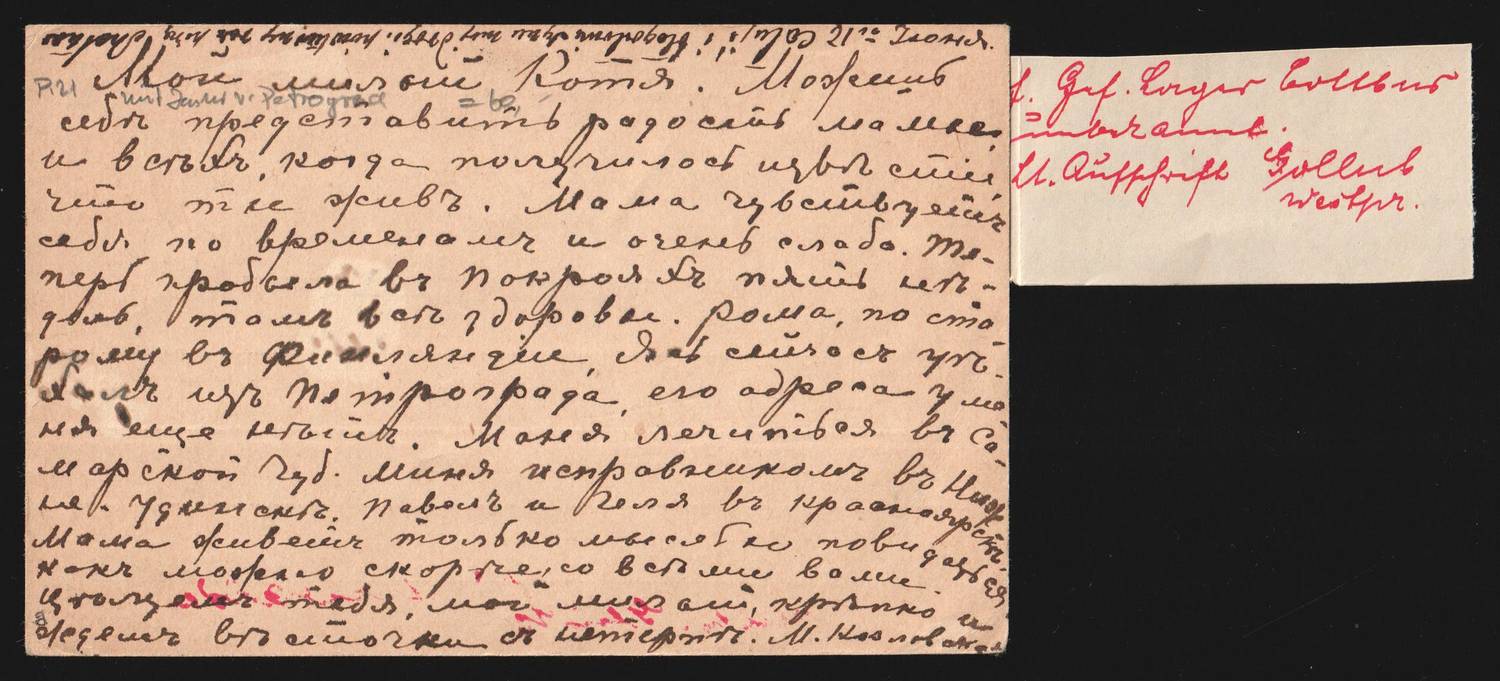 Мой милый Котя. Можешь
себѣ представить радость мамы
и всѣхъ, когда получилось извѣстіе,
что ты живъ. Мама чувствуетъ
себя по временамъ и очень слабо. Те-
перь пробыла въ Покрояхъ пять не-
дѣль, тамъ всѣ здоровы. Рома, по ста
рому въ Финляндіи, сейчасъ уѣ-
халъ изъ Петрограда, его адреса у ме
ня еще нѣтъ. Маня лечиться въ Са-
марской губ. Миня исправникомъ въ Ниж
не-Удинскѣ. Павелъ и Геля въ Красноярскѣ.
Мама живетъ только мыслью повидаться
какъ можно скорѣе со всѣми вами
цѣлуемъ тебя, мой милый, крѣпко и
ждемъ вѣсточки съ нетерпѣ. М. Козловская
P.21
v. Petrograd
f. Gef. Lager Cottbus
unbekannt.
lt. Aufschrift Gollub
Westpr.